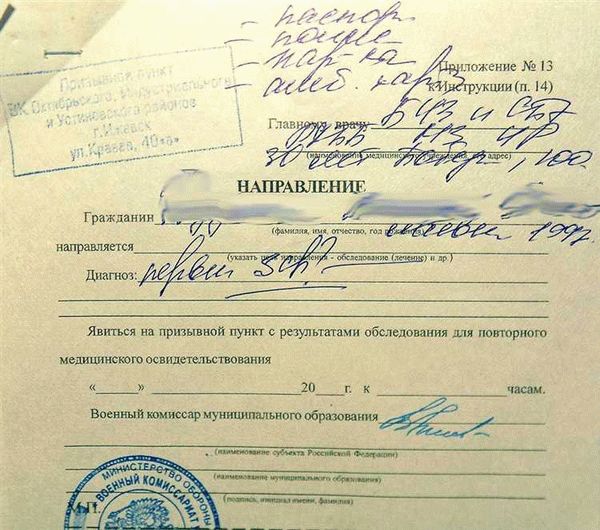 - паспорт
- полис
- амб. карта
Призывной пункт
ВК Октябрьского, Индустриального
и Устиновского районов
г.Ижевск
ул.Краева, 40«а»
Приложение № 13
к Инструкции (п. 14)
Главному врачу БУЗ и СПЭ
РКБ МЗ УР
30 лет Победы, 100
(наименование медицинского учреждения, его адрес)
НАПРАВЛЕНИЕ
Гражданин
(фамилия, имя, отчество, год рождения) 1997
направляется
(указать цель направления - обследование (лечение) и др.)
Диагноз: Sch?
Явиться на призывной пункт с результатами обследования для повторного
медицинского освидетельствования
«____» ____ 20__ г. к ____ часам.
Военный комиссар муниципального образования
(наименование субъекта Российской Федерации)
(наименование муниципального образования)
(подпись, инициал имени, фамилия)
М.П.
МИНИСТЕРСТВО ОБОРОНЫ
ВОЕННЫЙ КОМИССАРИАТ